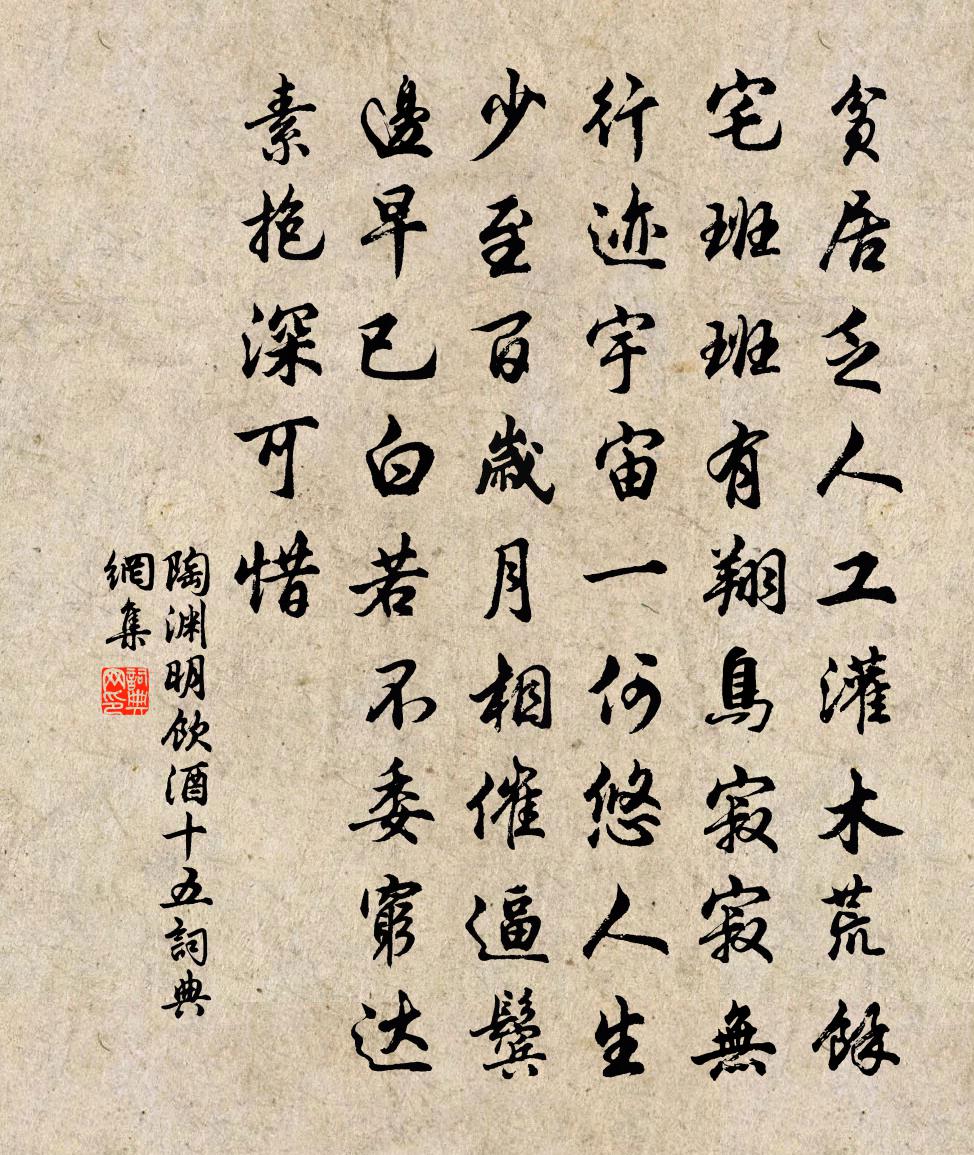 貧居乏人工灌木荒餘
宅班班有翔鳥寂寂無
行迹宇宙一何悠人生
少至百歲月相催逼鬢
邊早已白若不委窮达
素抱深可惜
陶渊明飲酒十五詞典
網集
詞典
网印